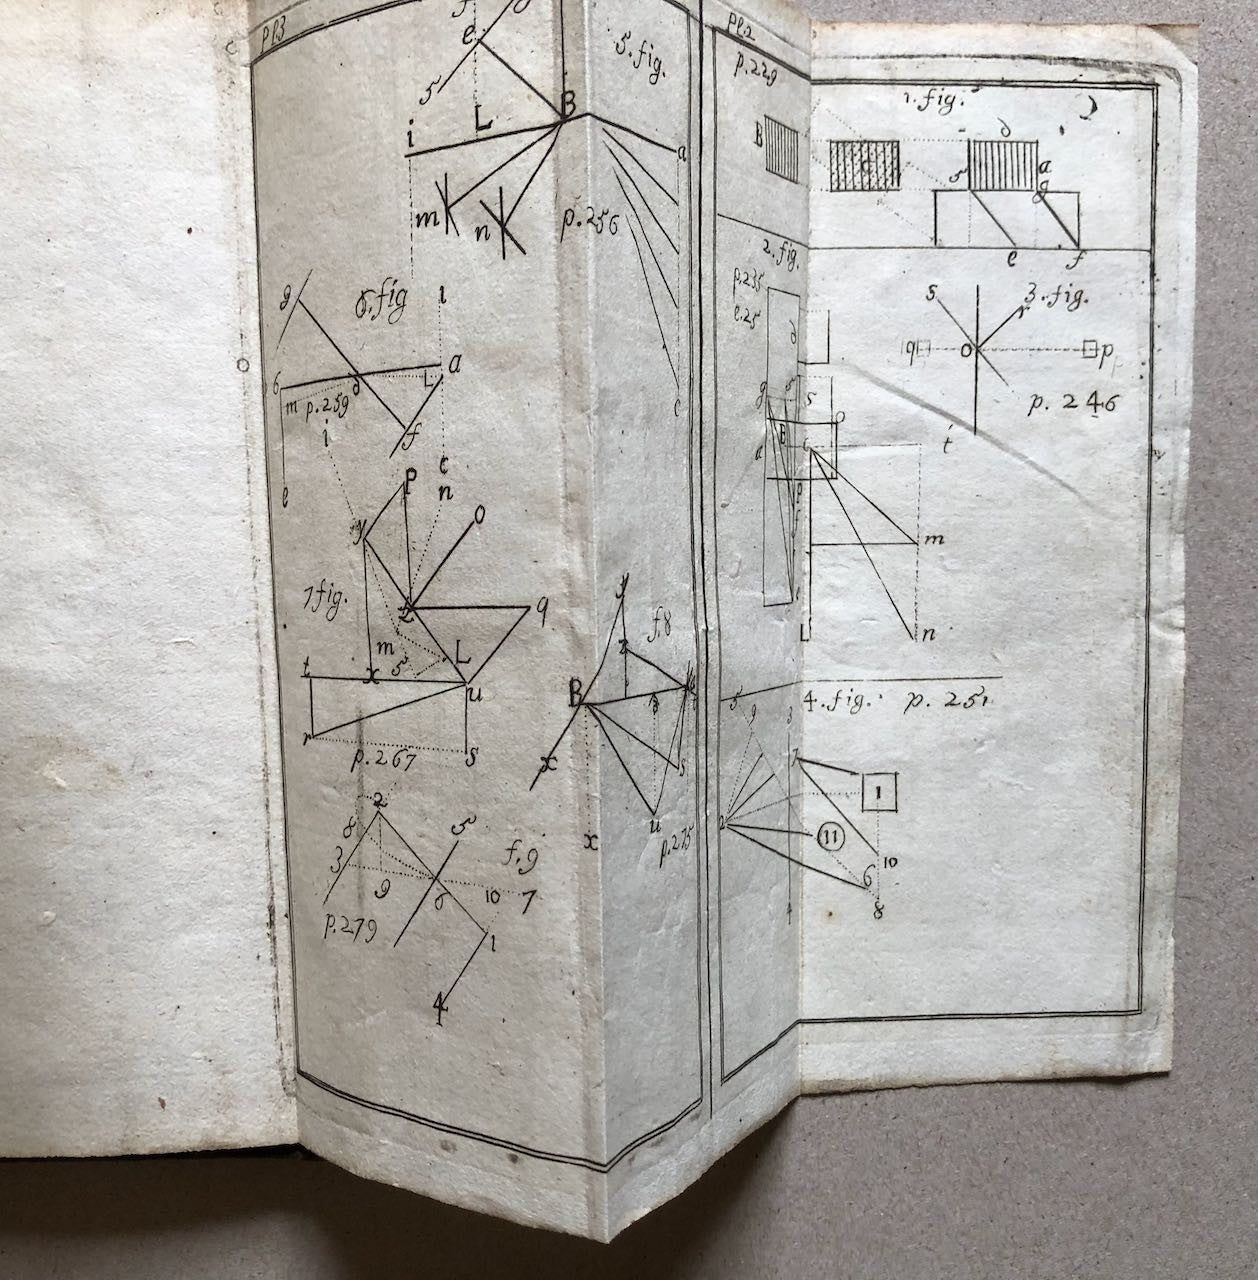 pl.3
f
e
5
L
B
i
m
n
p.256
5.fig.
a
c
6.fig
g
l
a
6
m
p.259
d
L
f
i
e
c
n
p
o
y
7fig.
z
q
m
5
L
t
x
u
r
s
p.267
2
8
5
f.9
3
9
6
10
7
p.279
1
4
y
f.8
z
B
3
x
s
u
x
p.275
pl.2
p.229
B
1.fig.
d
c
5
a
g
e
f
2.fig.
p.235
l.25
d
g
s
o
a
E
m
n
s
r
3.fig.
q
o
p
p. 246
t
4.fig. p. 251
5
9
3
7
1
2
11
10
6
8
4